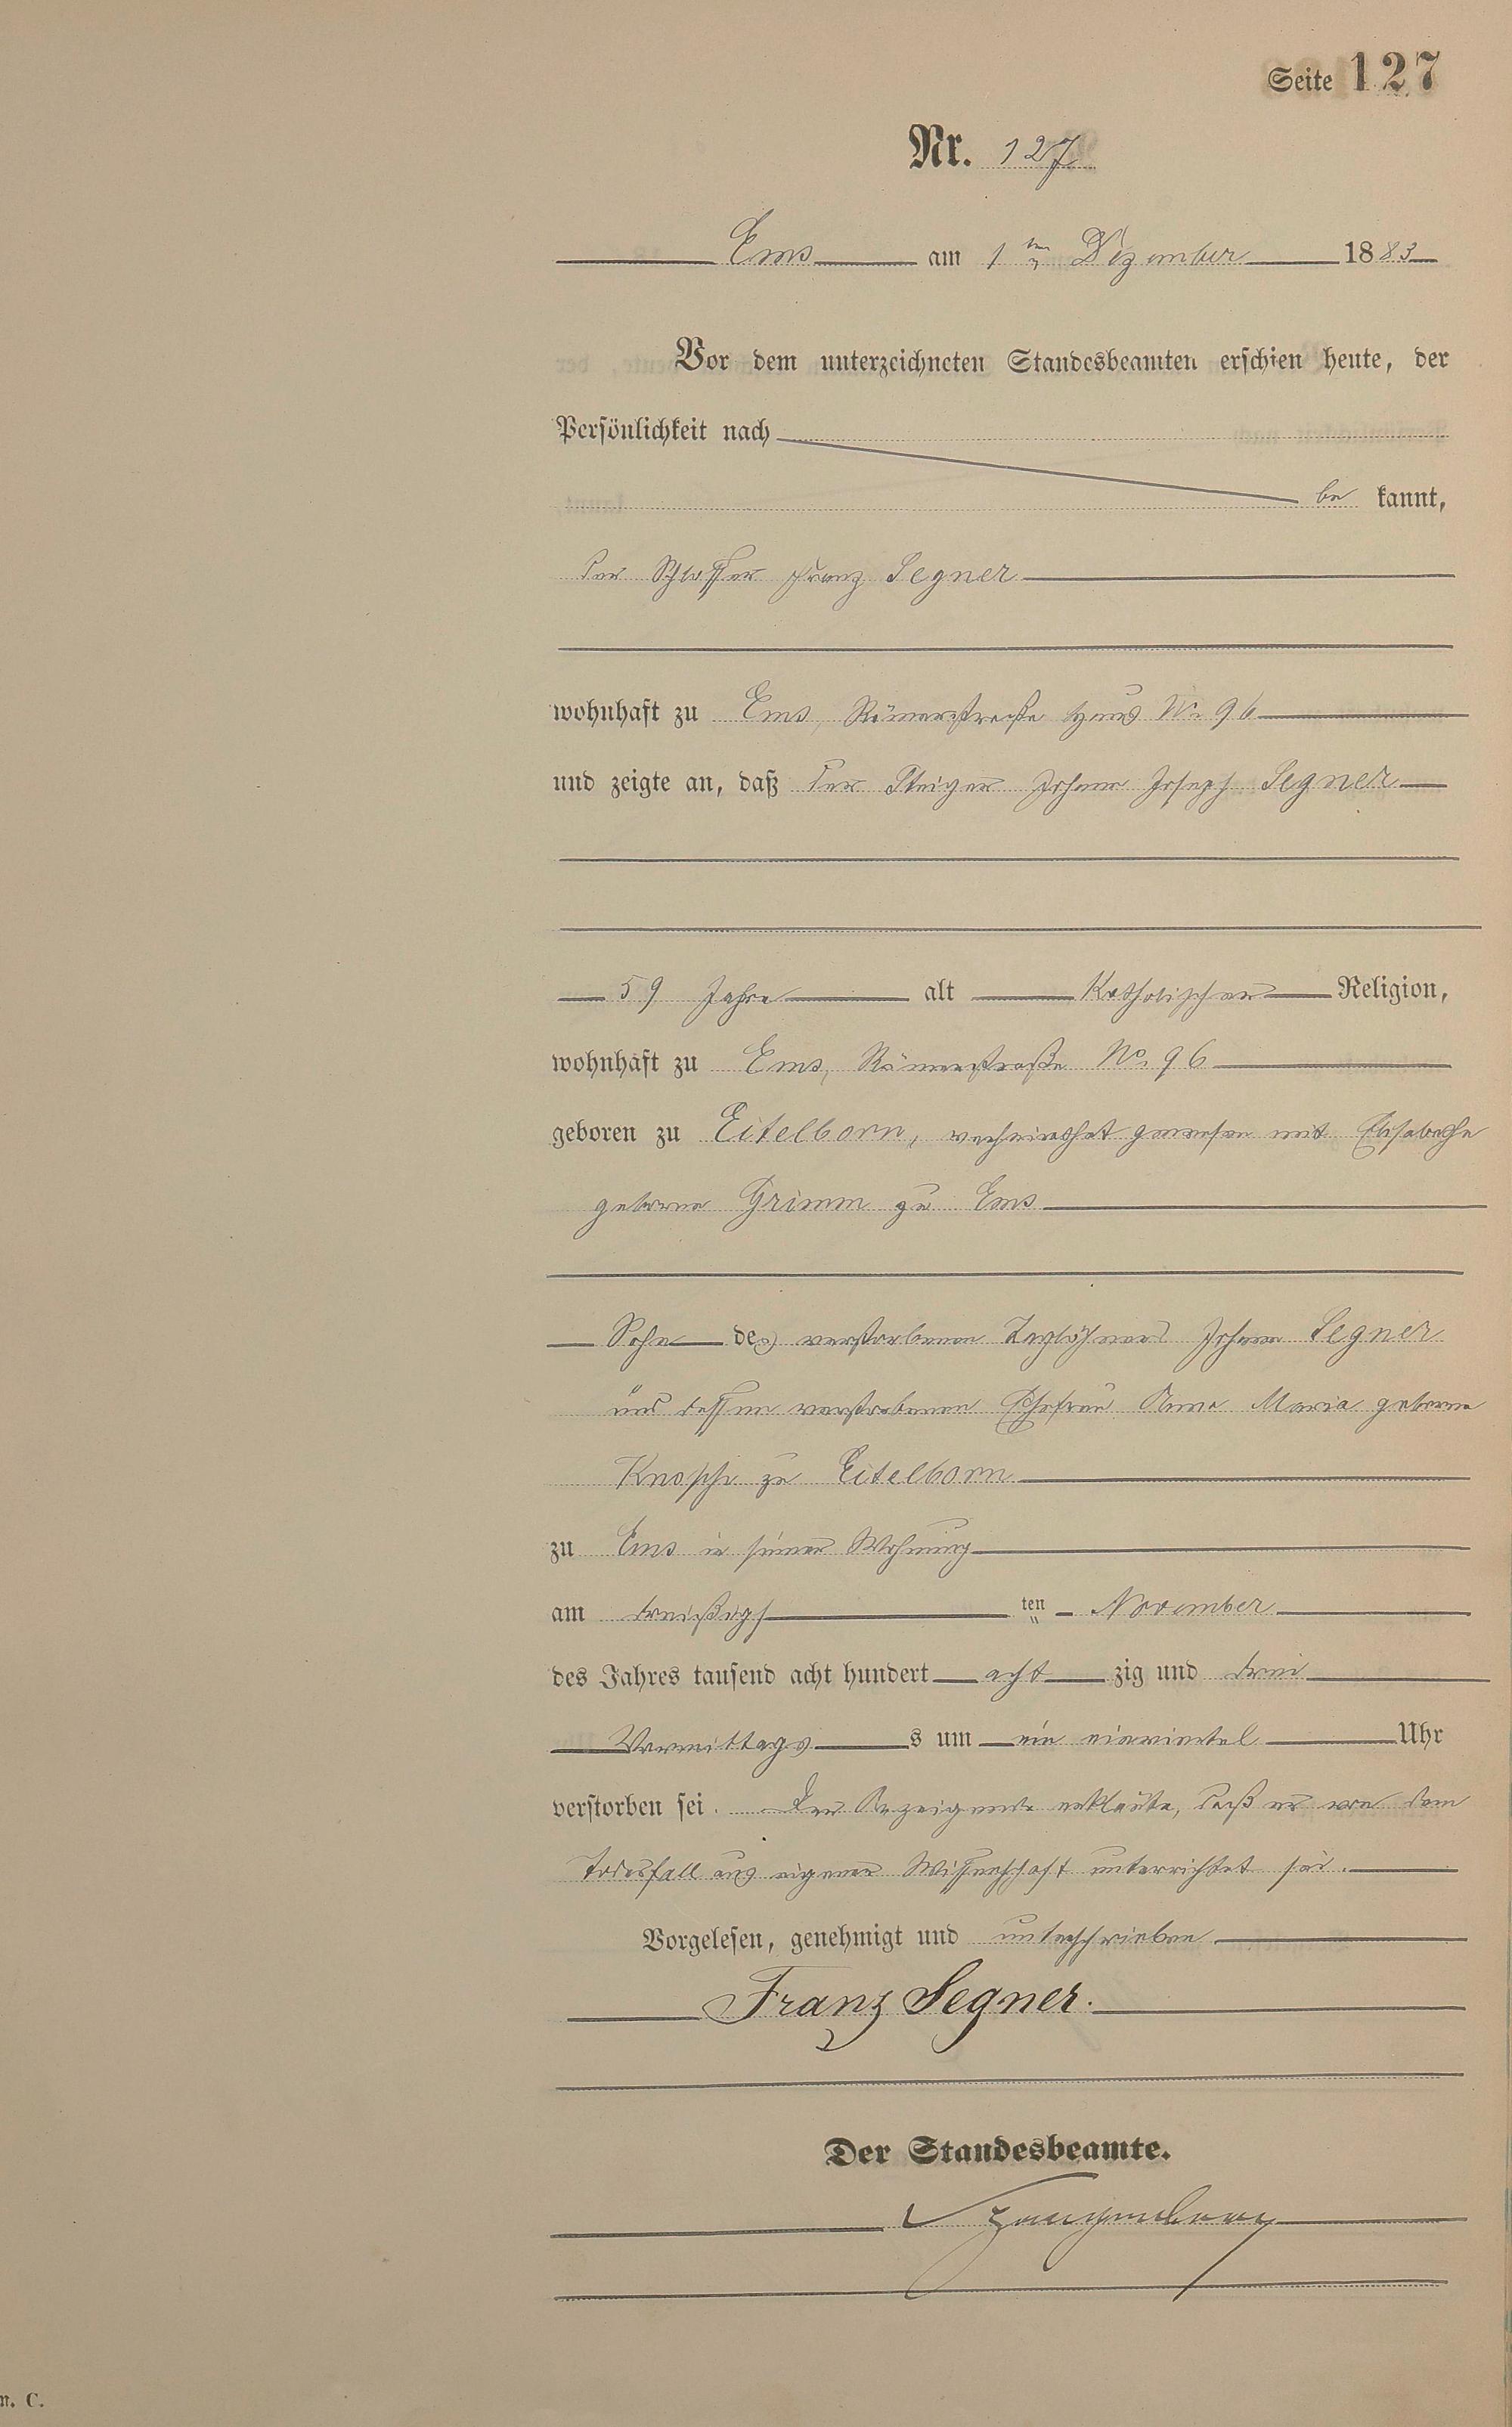 Seite 127
Nr. 127
Ems am 1ten Dezember 1883
Vor dem unterzeichneten Standesbeamten erschien heute, der
Persönlichkeit nach
be kannt,
der Schlosser Franz Segner
wohnhaft zu Ems, Römerstraße Haus No 96
und zeigte an, daß der Steiger Johann Joseph Segner
59 Jahre alt Katholischer Religion,
wohnhaft zu Ems, Römerstraße No. 96
geboren zu Eitelborn, verheirathet gewesen mit Elisabethe
geborne Grimm zu Ems
Sohn des verstorbenen Taglöhners Johann Segner
und dessen verstorbenen Ehefrau Anna Maria geborne
zu Eitelborn
zu Ems in seiner Wohnung
am dreißigs ten November
des Jahres tausend acht hundert acht zig und drei
Vormittags s um ein einviertel Uhr
verstorben sei. Der Anzeigende erklärte, daß er von dem
Todesfall aus eigener Wissenschaft unterrichtet sei.
Vorgelesen, genehmigt und unterschrieben
Franz Segner.
Der Standesbeamte.
n. C.